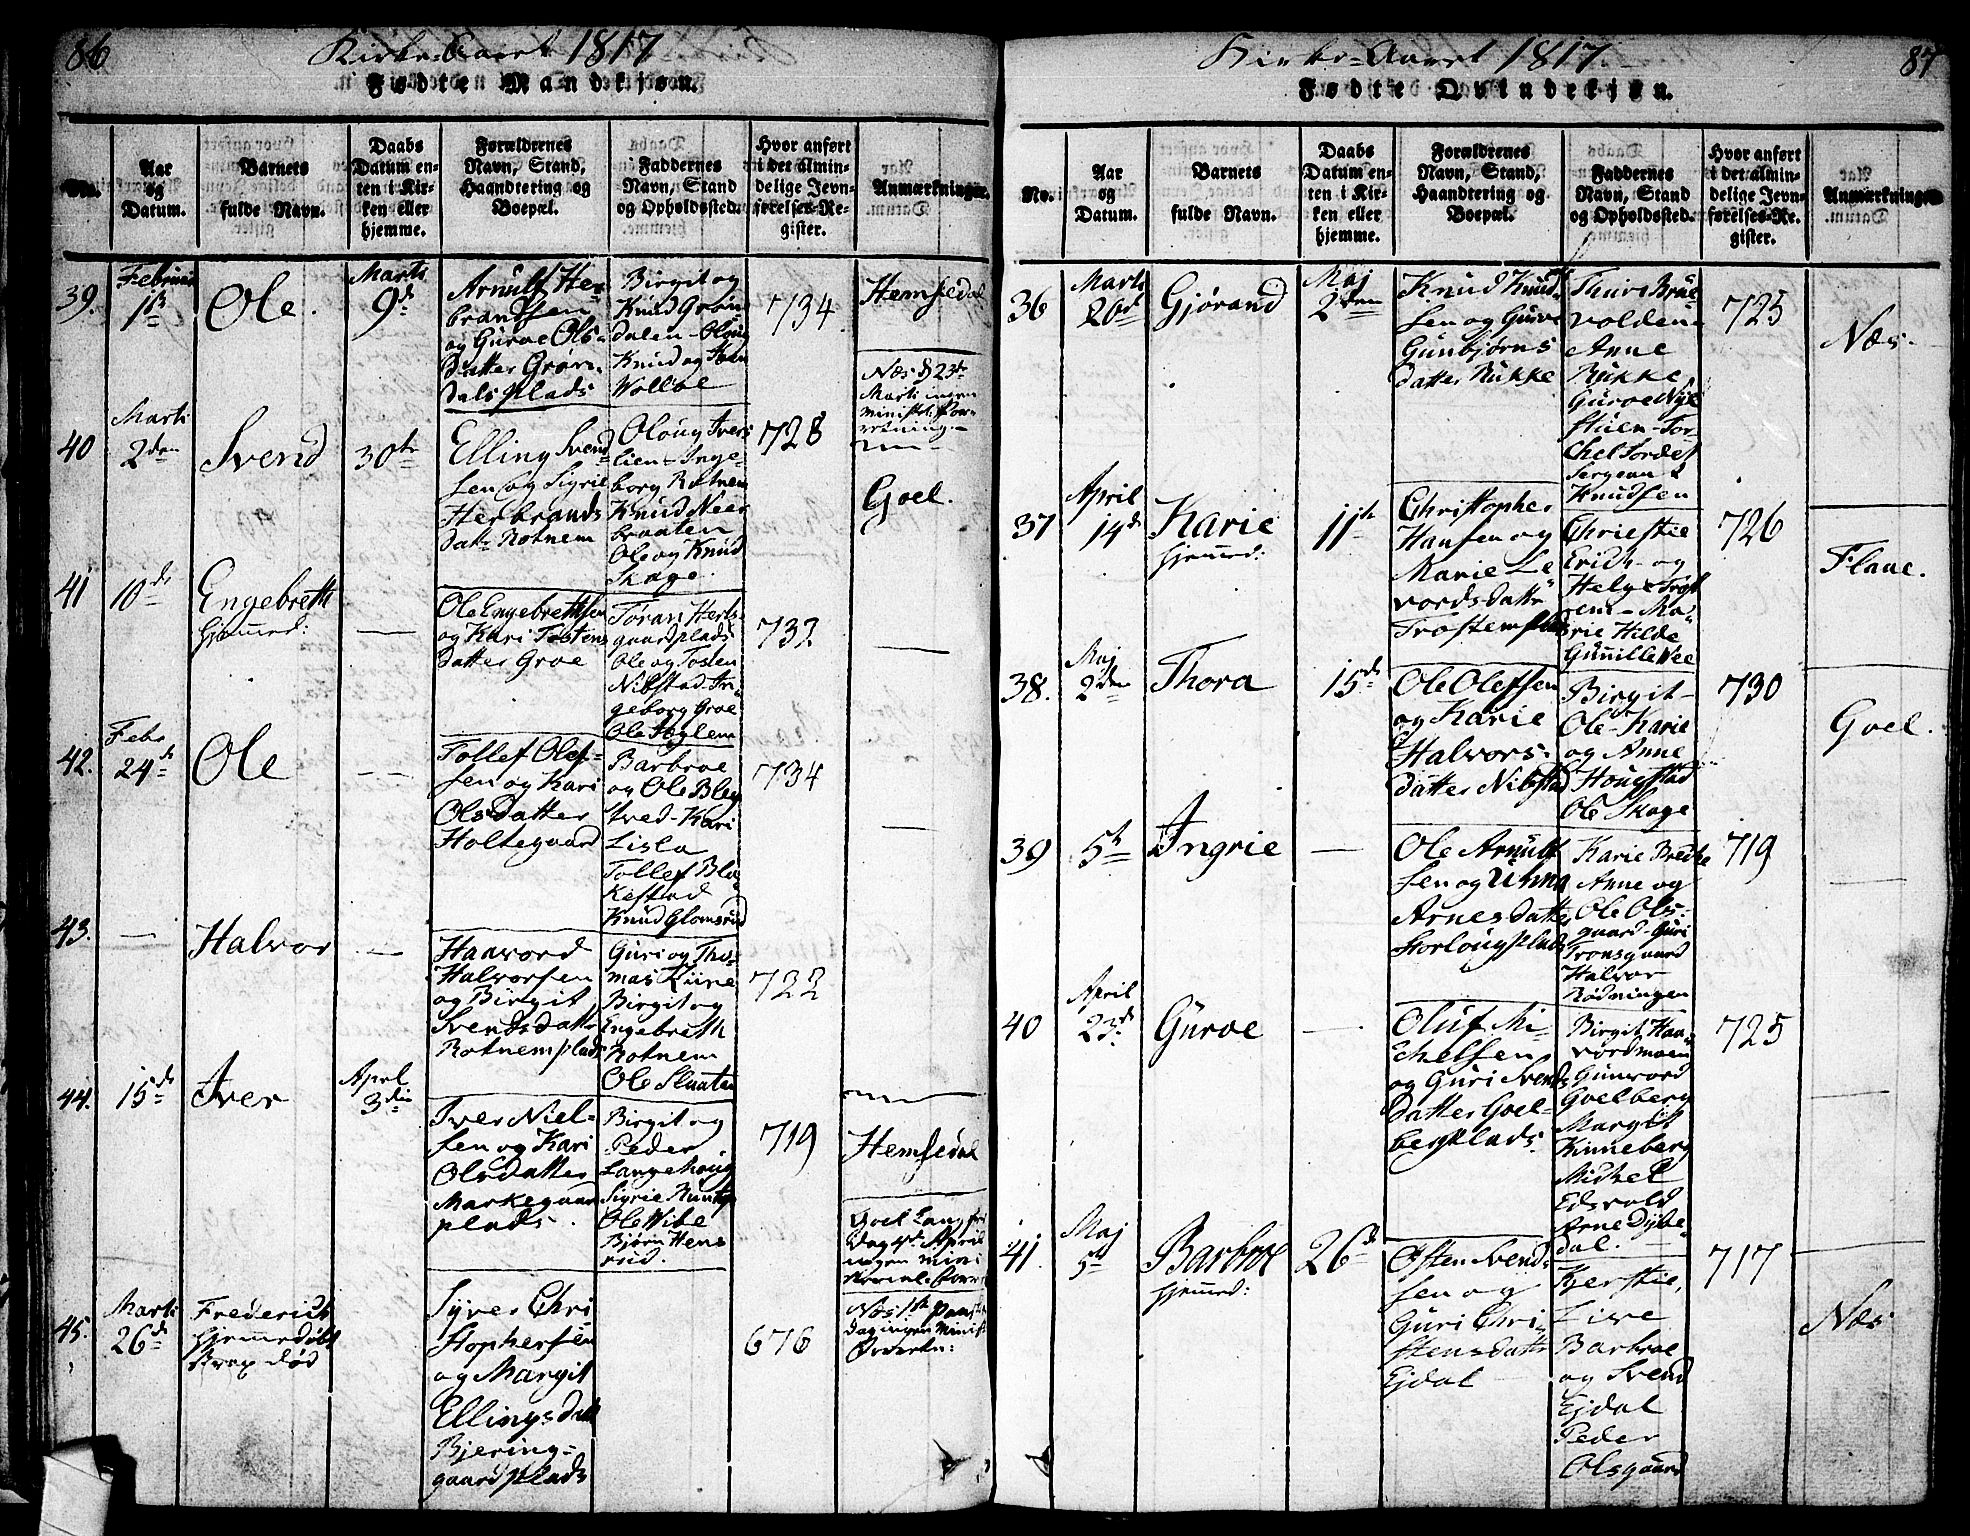 86
Kirke-Aaret 1817
Fødte Mandkjøn.
No.
Aar
og
Datum.
Barnets
fulde Navn.
Daabs
Datum en-
ten i Kir-
ken eller
hjemme.
Forældrenes
Navn, Stand,
Haandtering og
Boepæl.
Faddernes
Navn, Stand
og Opholdssted.
Hvor anført
i det almin-
delige Jevn-
førelses-Re-
gister.
Anmærkninger.
39.
Februar
Ole.
Marti
9d
Arnulf Her-
brandsen
og Gurve Ols-
datter Grøn-
dals plads
Birgit og
Knud Grøn-
dalen - Oloug
Knud og
734
Hemsedal
Næs d 23de
Marti ingen
minist. For-
retning.
40
Marti
2den
Svend
30te
Elling Svend-
sen og Sigrie
Herbrands
datr Rotnem
Oloug Ivers
lien - Inge-
borg Rotnem
Knud Neer-
braaten
Ole og Knud
Skage.
728
Goel.
41
10de
Engebreth
hjemmed:
—
Ole Engebrethsen
og Kari Tostens
datter Groe
Tøran Herts-
gaardplads
Ole og Tosten
Nibstad In-
geborg Groe
Ole Heglem
732
—
42.
Febr
24de
Ole
—
Tollef Olef-
sen og Kari
Olsdatter
Holtegaard
Barbroe
og Ole Bley
tved - Kari
Lisla
Tollef Bla-
kestad
Knud Glomsrud
734
—
43.
—
Halvor
—
Haavord
Halvorsen
og Birgit
Svendsdattr
Rotnemplads
Guri og Tho-
mas Kiine
Birgit og
Engebreth
Rotnem
Ole Slaaten
722
44.
15de
Iver
Aprl
3die
Iver Niel-
sen og Kari
Olsdatter
Markegaard
plads.
Birgit og
Peder
Langehoug
Sigrie
Ole Vibe
Bjørn Hens
rud.
719
Hemsedal
Goel Langfri
dag 4de April
ingen mini-
45.
Marti
26de
Frederich
hjemmedøbt
strax død
Syver Chri
stophersen
og Margit
Ellings datt
Bjering-
gaardplads
676
Næs 1ste Paaske
dag ingen minist

87
Kirke-Aaret 1817.
Fødte Qvindekjøn.
No.
Aar
og
Datum.
Barnets
fulde Navn.
Daabs
Datum en-
ten i Kir-
ken eller
hjemme.
Forældrenes
Navn, Stand,
Haandtering og
Boepæl.
Faddernes
Navn, Stand
og Opholdssted.
Hvor anført
i det almin-
delige Jevn-
førelses-Re-
gister.
Anmærkninger
36
Marti
26d
Gjørand
Maj
2den
Knud Knud-
sen og Gurve
Gunbjørns
datter Rukke
Thure Brue
volden-
Anne
Rukke
Gurve Nye
stuen - Tor-
chel Tordet
Sergeant
Knudsen
725
Næs.
37
April
14d
Karie
hjemmed:
11te
Christopher
Hansen og
Marie Le-
vordsdattr
Trostemplads
Chriestie
Erich - og
Helge Trost
em - Ma-
rie Hilde
Gunille Wee
726
Flaae.
38.
Maj
2den
Thora
15de
Ole Olefsen
og Karie
Halvors-
datter Nibstad
Birgit-
Ole - Karie
og Anne
Hougstad
Ole Skage
730
Goel.
39
5te
Ingrie
—
Ole Arnulf
sen og Unna
Arnesdatter
Storlougplads
Karie Brecke
Anne og
Ole Ols-
gaard - Guri
Tronsgaard
Halvor
Rødningen
719
—
40
April
23de
Gurve
—
Oluf Mi-
chelsen
og Guri Svends
datter Goel-
bergplads.
Birgit Haa-
vordmoen
Gunvord
Goelberg
Margit
Kinneberg
Michel
Edsvold
Arne Dybe-
dal.
725
—
41.
Maj
5te
Barbroe
hjemmed:
26de
Østen Svend-
sen og
Guri Chri-
stensdattr
Ejdal
Kerstie,
Live
Barbroe
og Svend
Ejdal
Peder
Olsgaard
717
Næs